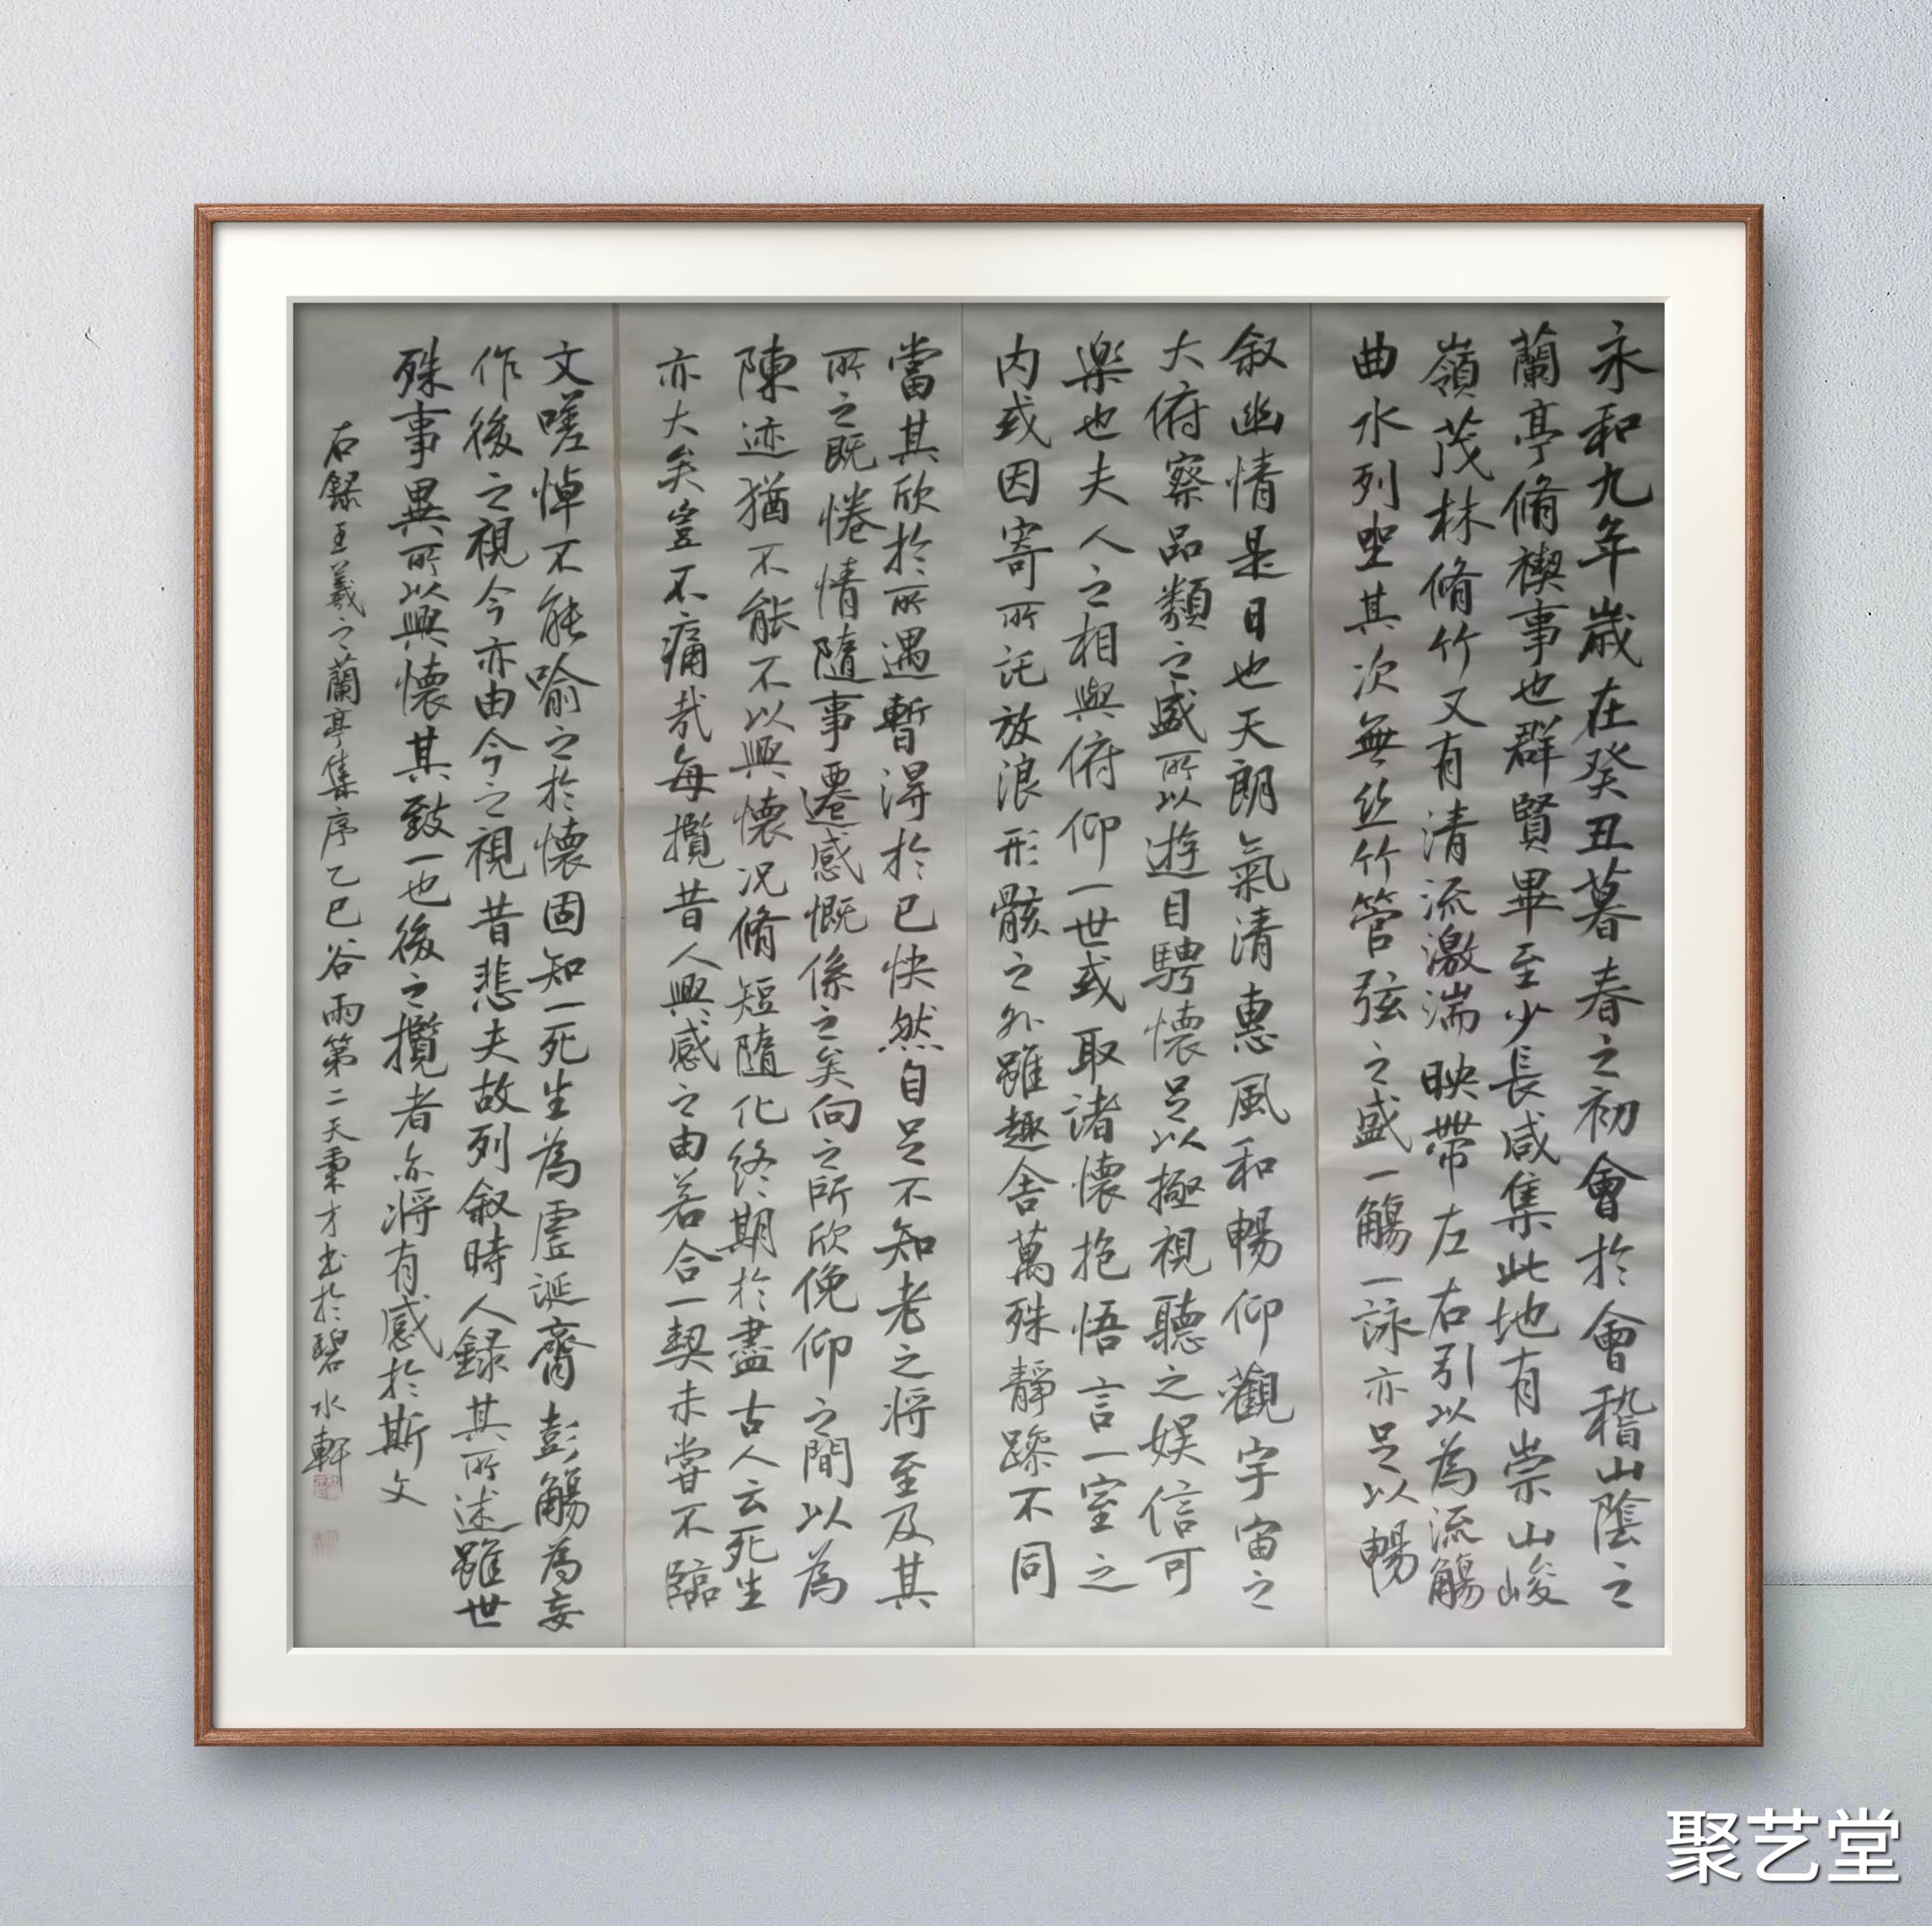 永和九年歲在癸丑暮春之初會於會稽山陰之
蘭亭脩禊事也群賢畢至少長咸集此地有崇山峻
嶺茂林脩竹又有清流激湍映帶左右引以為流觴
曲水列坐其次無丝竹管弦之盛一觴一詠亦足以暢
叙幽情是日也天朗氣清惠風和暢仰觀宇宙之
大俯察品類之盛所以遊目騁懷足以極視聽之娱信可
樂也夫人之相與俯仰一世或取諸懷抱悟言一室之
内或因寄所託放浪形骸之外雖趣舍萬殊靜躁不同
當其欣於所遇暫得於己快然自足不知老之將至及其
所之既惓情隨事遷感慨係之矣向之所欣俛仰之間以為
陳迹猶不能不以興懷況脩短隨化終期於盡古人云死生
亦大矣豈不痛哉每攬昔人興感之由若合一契未嘗不臨
文嗟悼不能喻之於懷固知一死生為虛誕齊彭觴為妄
作後之視今亦由今之視昔悲夫故列叙時人録其所述雖世
殊事異所以興懷其致一也後之攬者亦將有感於斯文
右録王羲之蘭亭集序乙巳谷雨第二天秉才书於碧水軒
聚艺堂